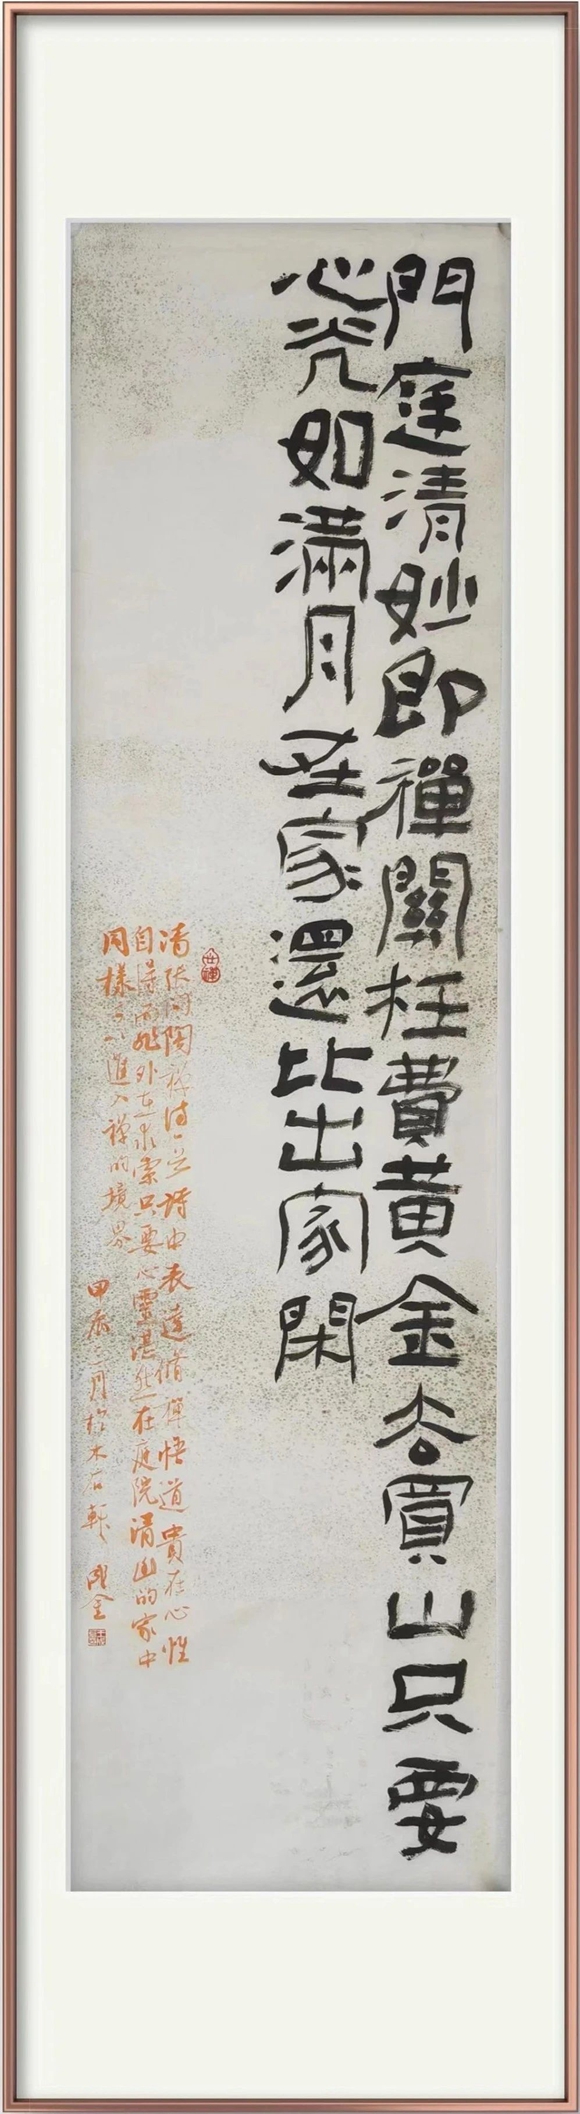 門庭清妙即禪關枉費黃金去買山只要
心光如滿月在家還比出家閑
清張問陶禪詩一首詩中表達脩禪悟道貴在心性
自得而非外在求索只要心靈湛然在庭院清幽的家中
同樣可以進入禪的境界 甲辰二月於木石軒